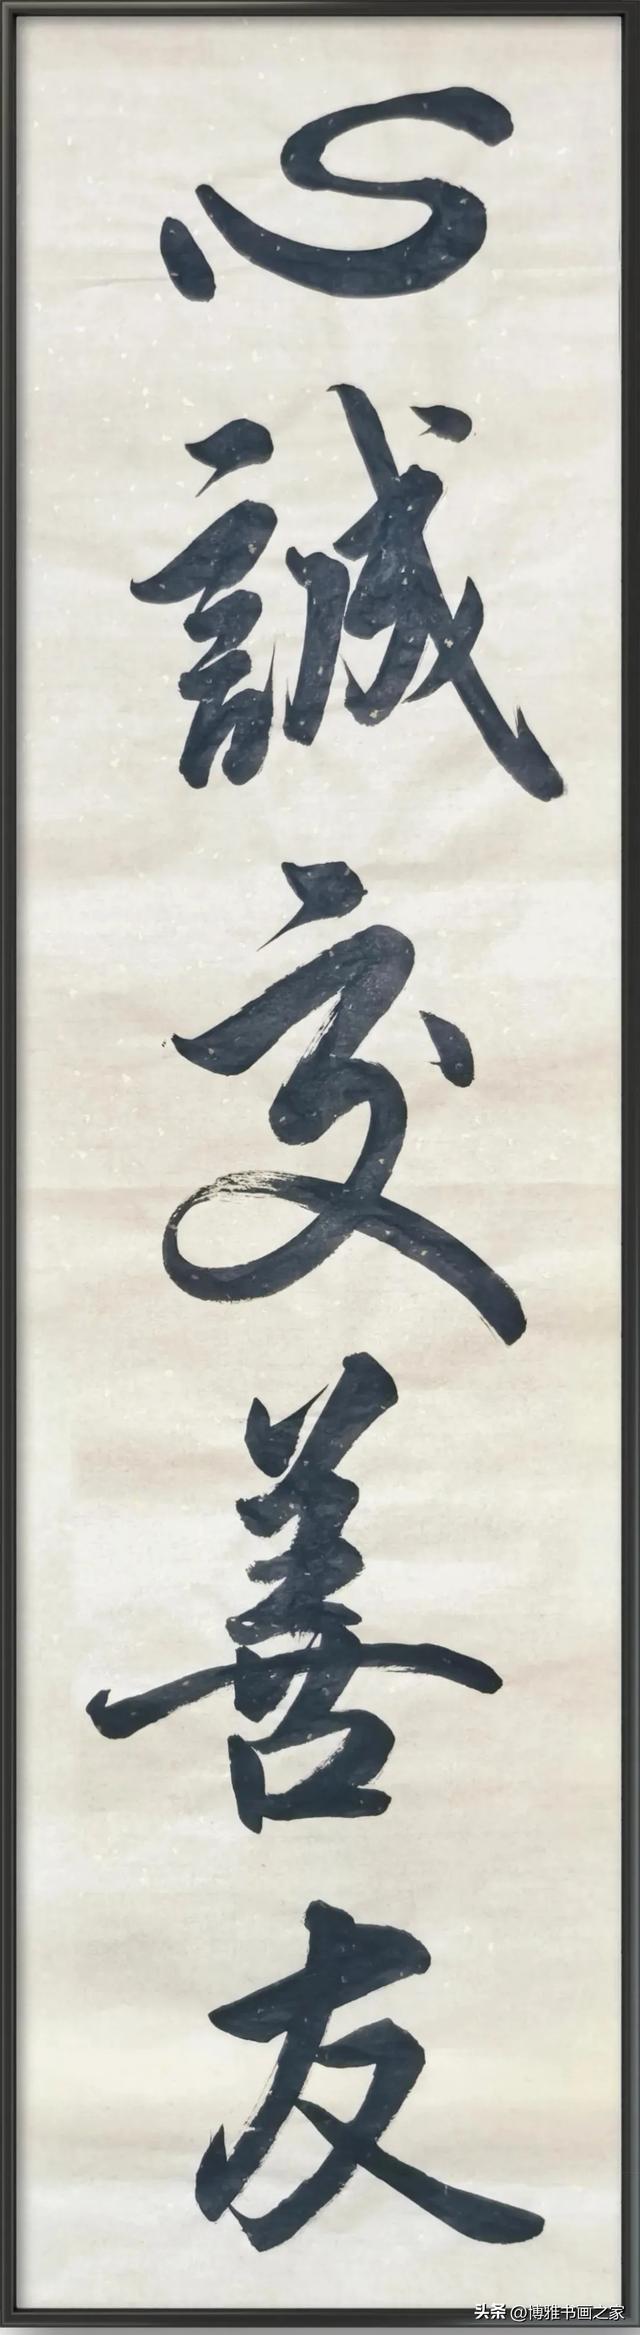 心誠交善友
头条 @博雅书画之家